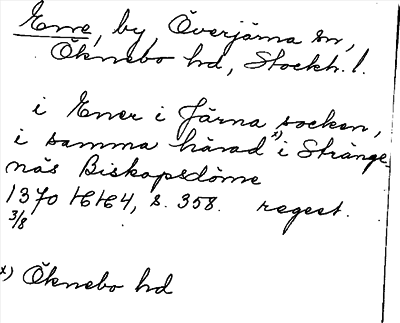 Ene, by, Överjärna sn,
Öknebo hd, Stockh. l.
i Ener i Järna socken,
i samma härad x) i Stränge-
näs Biskopsdöme
1370 HH4, s. 358. regest.
3/8
x) Öknebo hd